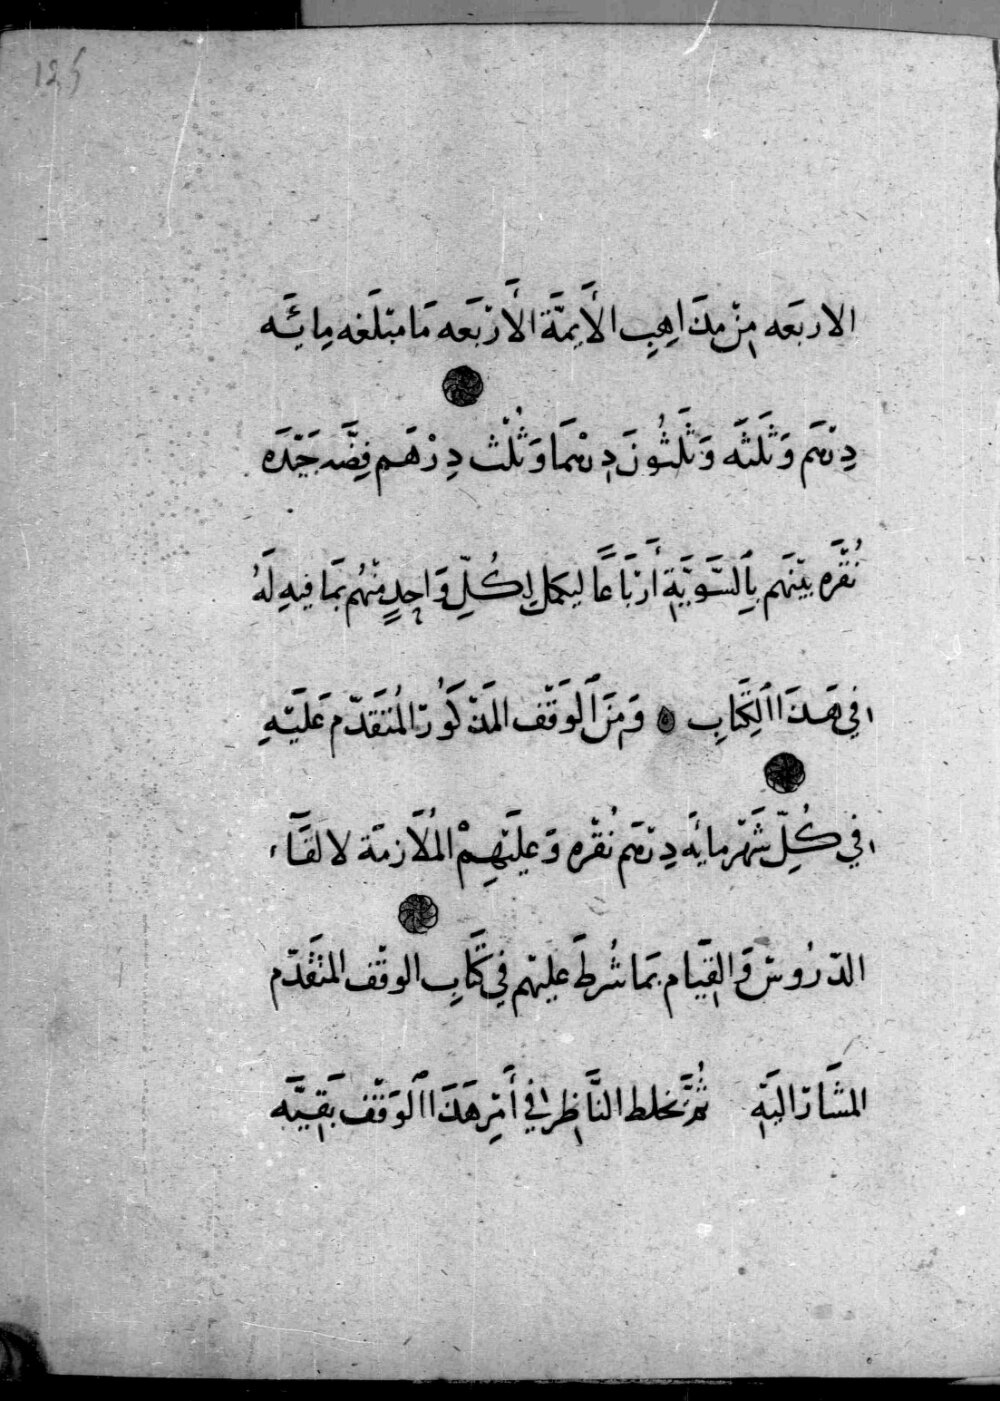 125
الاربَعَه مِنْ مذَاهِبِ الأَيِمَّة الأَرْبَعَه مَا مبْلَغه مِائَه
دِرْهَم وَثَلَثَه وَثَلَثُونَ دِرْهَمَا وَثُلْث دِرْهَم فِضَّه جَيّدَه
نُقْرَه بيْنَهَم بِالسَّوِيَّةِ أَرْبَاعًا ليكمل لِكُلِّ وَاحِدٍ مِنْهُم بمَا فيهِ لَهُ
في هَذَا الكِتَابِ وَمِنَ الوَقْف المَذْكُور المُتَقَدّم عَليْهِ
في كُلِّ شَهْر مائَة دِرْهَم نُقْره وَعليْهِمْ المُلَازمَة لالقَآء
الدّرُوسْ وَالقِيَام بمَا شُرطَ عليْهم في كتَابِ الوقْف المتَقَدّم
المشَار اليْهِ ثُمَّ يخلط النَّاظِر في أَمْرِ هَذَا الوَقْف بَقِيَّه